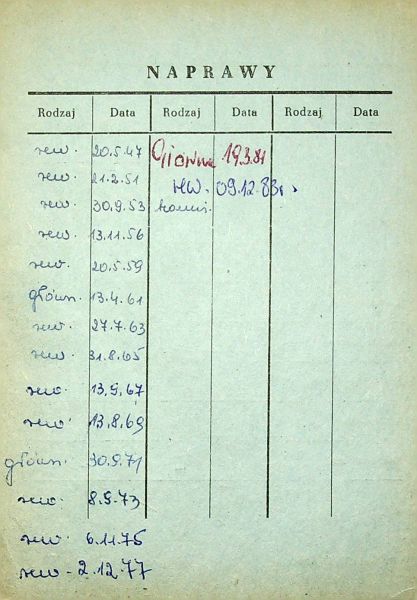 NAPRAWY
Rodzaj Data Rodzaj Data Rodzaj Data
rew. 20.5.47 Główna 19.3.81
rew. 21.2.51 rew. 09.12.83r.
rew. 30.9.53
rew. 13.11.56
rew. 20.5.59
główn. 13.4.61
rew. 27.7.63
rew. 31.8.65
rew. 13.9.67
rew. 13.8.69
główn. 30.9.71
rew. 8.9.73
rew. 6.11.75
rew - 2.12.77